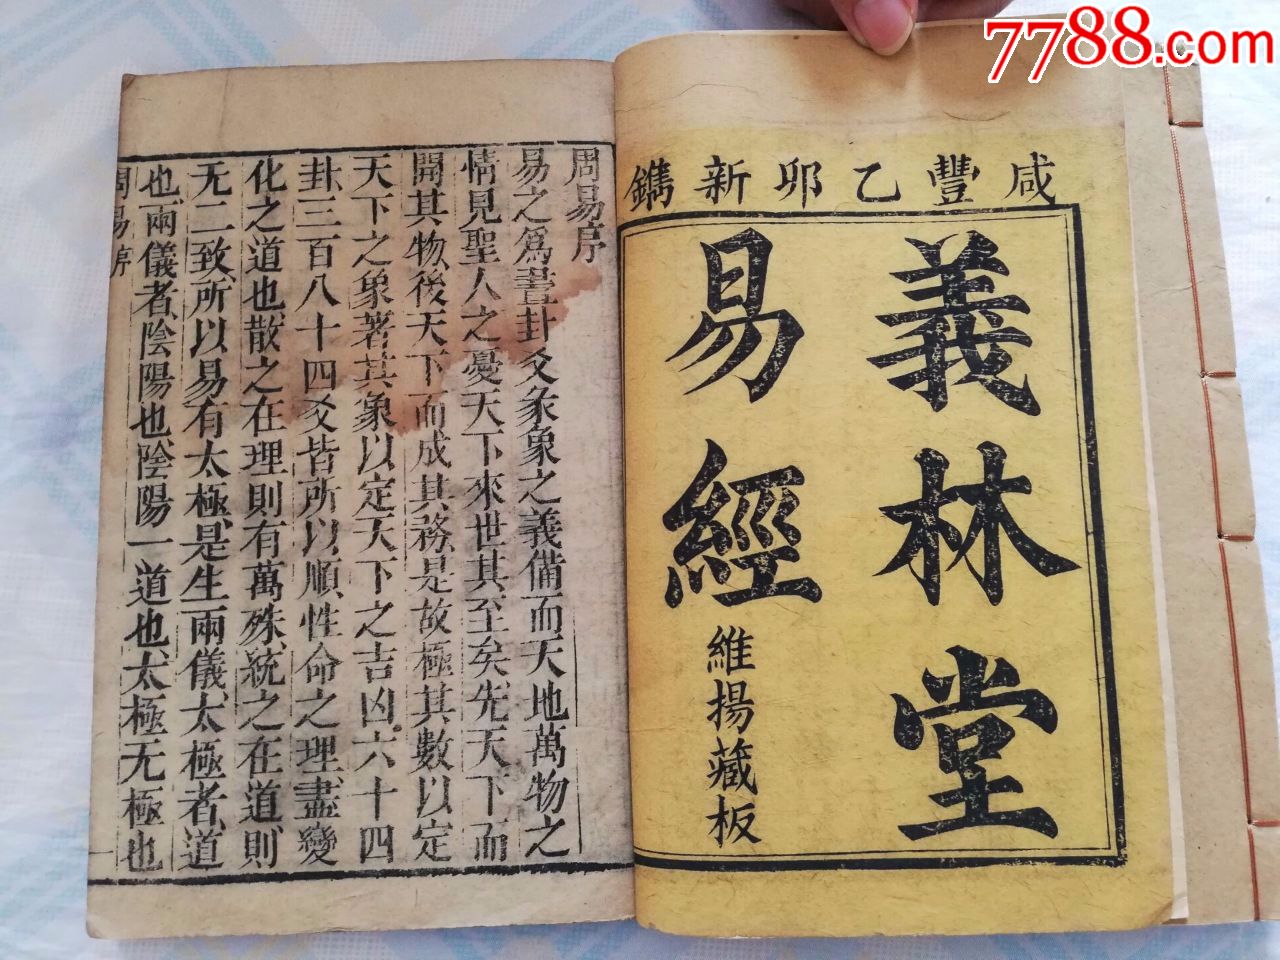 7788.com
咸豐乙卯新鐫
義林堂
易經
維揚藏板
周易序
易之爲書卦爻彖象之義備而天地萬物之
情見聖人之憂天下來世其至矣先天下而
開其物後天下而成其務是故極其數以定
天下之象著其象以定天下之吉凶六十四
卦三百八十四爻皆所以順性命之理盡變
化之道也散之在理則有萬殊統之在道則
无二致所以易有太極是生兩儀太極者道
也兩儀者陰陽也陰陽一道也太極无極也
周易序